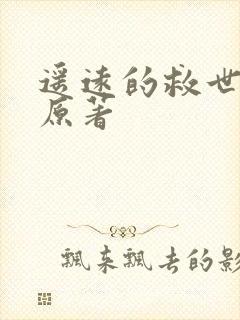 遥远的救世
原著
飘来飘去的影